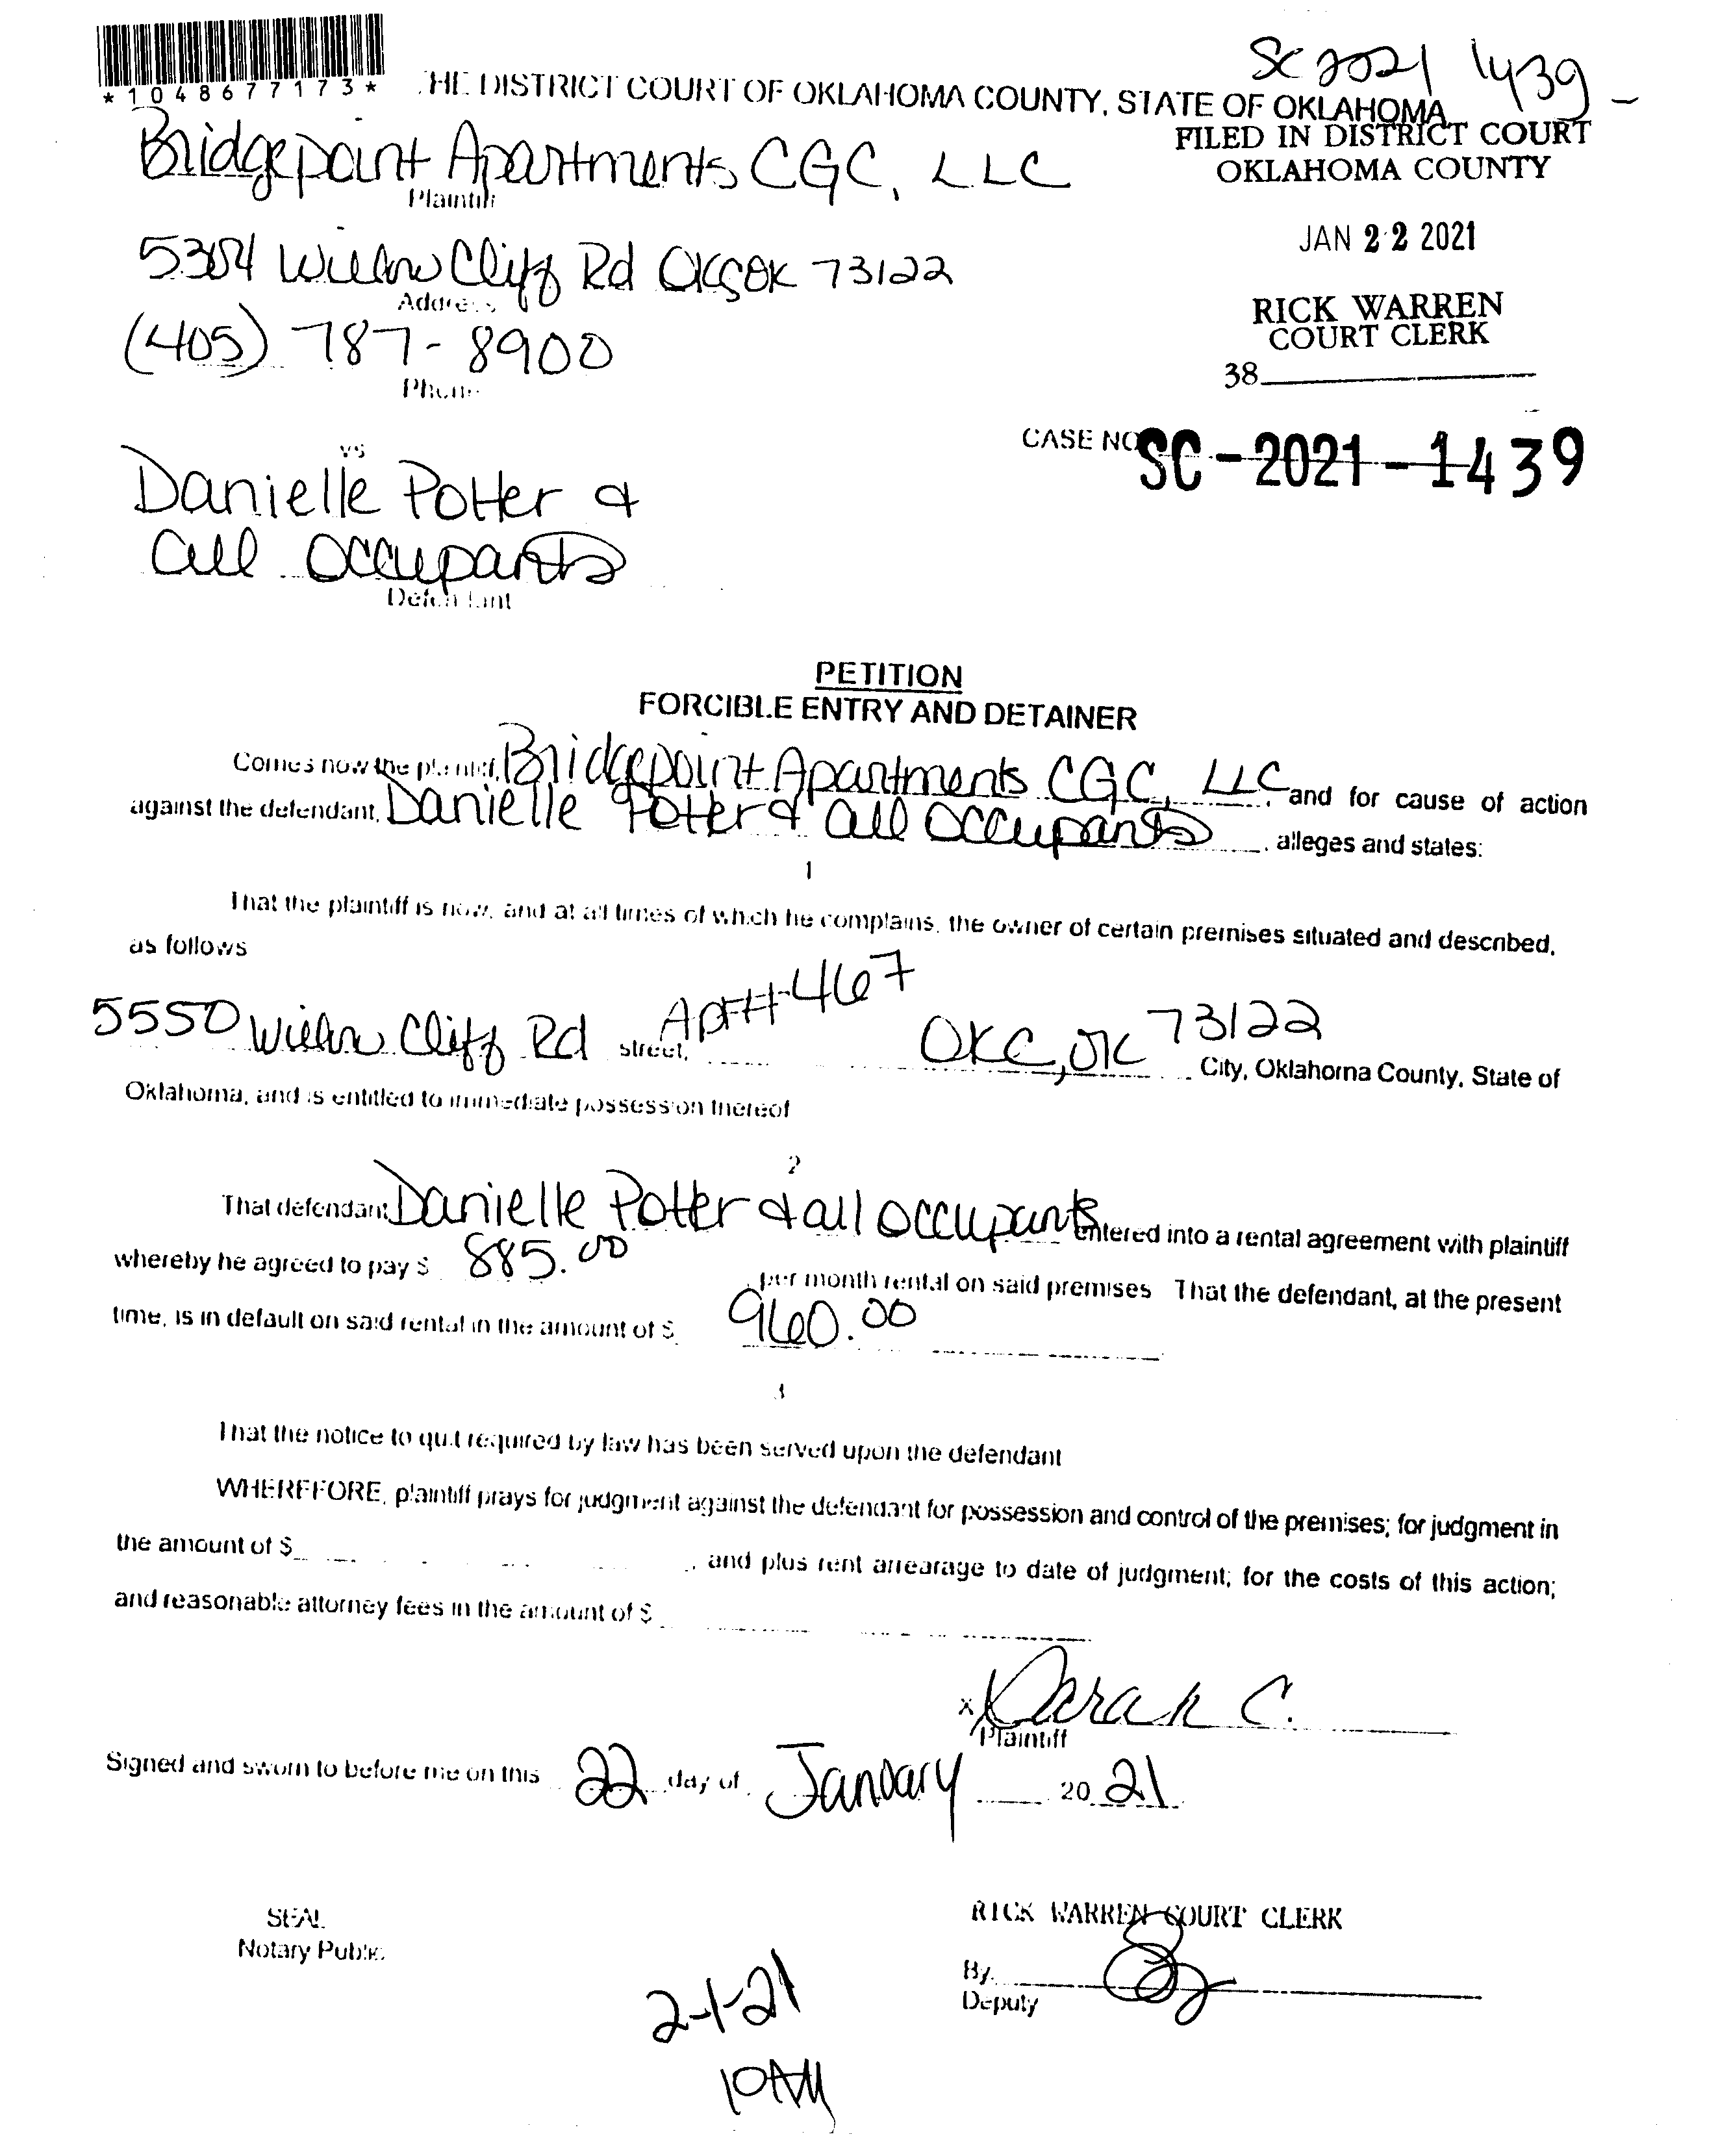 SC 2021 1439
*1048677173*
HE DISTRICT COURT OF OKLAHOMA COUNTY, STATE OF OKLAHOMA
FILED IN DISTRICT COURT
OKLAHOMA COUNTY
Bridgepoint Apartments CGC, LLC
Plaintiff
JAN 22 2021
5304 Willow Cliff Rd OKC OK 73122
Address
RICK WARREN
COURT CLERK
(405) 787-8900
Phone
38
CASE NO SC-2021-1439
vs
Danielle Potter &
all occupants
Defendant
PETITION
FORCIBLE ENTRY AND DETAINER
Comes now the plaintiff, Bridgepoint Apartments CGC, LLC, and for cause of action
against the defendant, Danielle Potter & all occupants, alleges and states:
1
That the plaintiff is now, and at all times of which he complains, the owner of certain premises situated and described,
as follows
5550 Willow Cliff Rd street, Apt# 467 OKC, OK 73122 City, Oklahoma County, State of
Oklahoma, and is entitled to immediate possession thereof
2
That defendant Danielle Potter & all occupants entered into a rental agreement with plaintiff
whereby he agreed to pay $ 885.00 per month rental on said premises That the defendant, at the present
time, is in default on said rental in the amount of $ 960.00
3
That the notice to quit required by law has been served upon the defendant
WHEREFORE, plaintiff prays for judgment against the defendant for possession and control of the premises; for judgment in
the amount of $ , and plus rent arrearage to date of judgment; for the costs of this action;
and reasonable attorney fees in the amount of $
x Sarah C.
Plaintiff
Signed and sworn to before me on this 22 day of January 20 21
SEAL
Notary Public
RICK WARREN COURT CLERK
By
Deputy
2-1-21
10AM